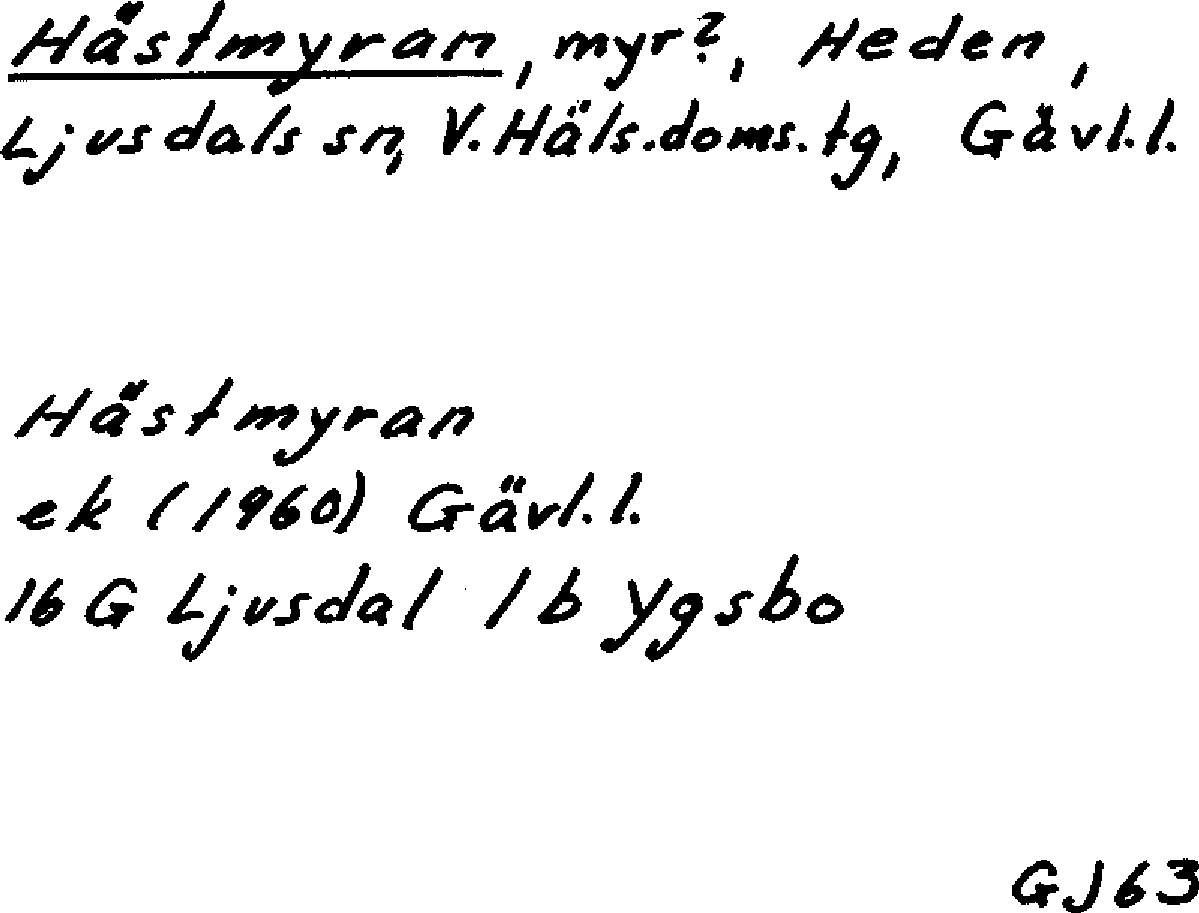 Hästmyran, myr?, Heden,
Ljusdals sn, V.Häls.doms.tg, Gävl.l.
Hästmyran
ek (1960) Gävl.l.
16 G Ljusdal 1 b Ygsbo
GJ63